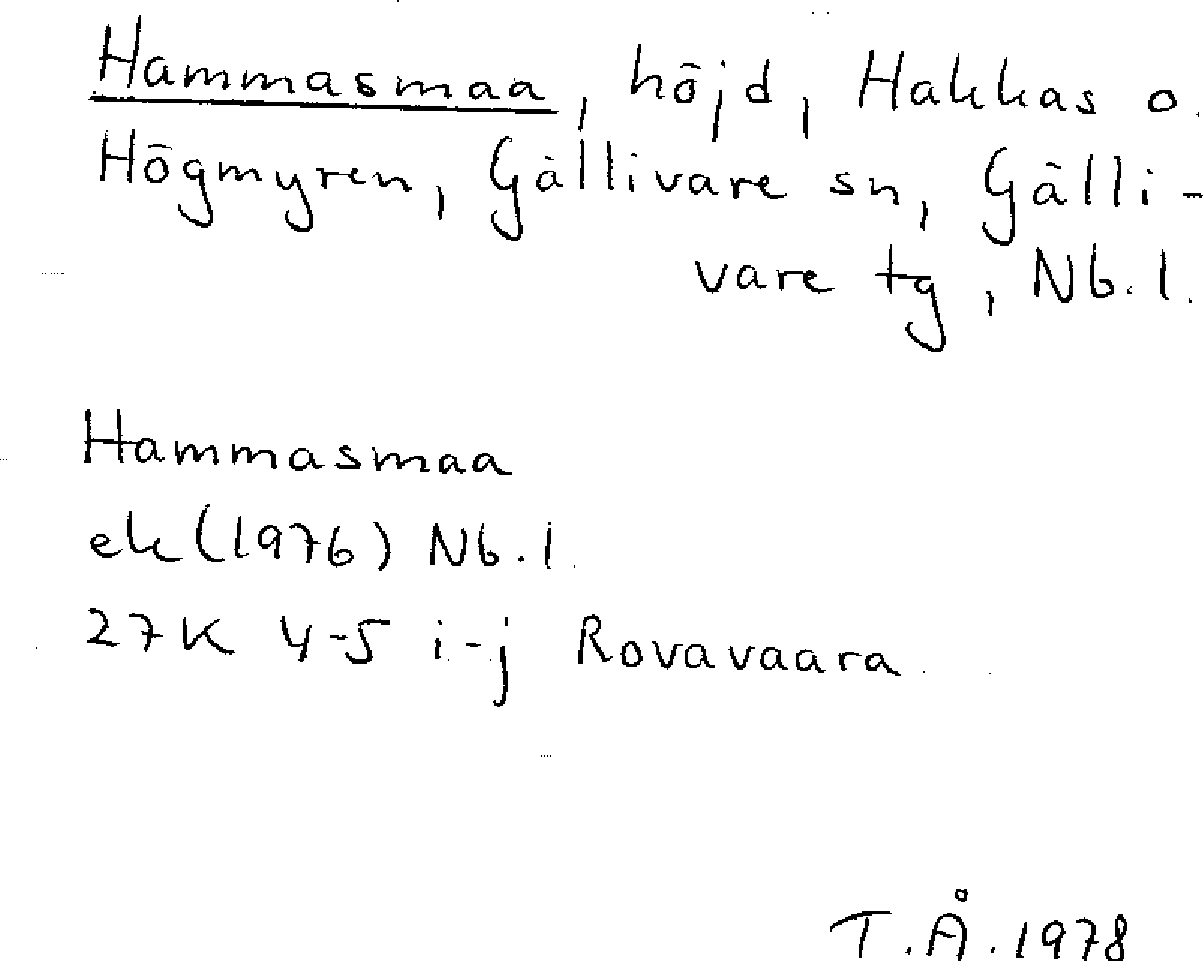 Hammasmaa, höjd, Hakkas o.
Högmyren, Gällivare sn, Gälli-
vare tg, Nb. l.
Hammasmaa
ek (1976) Nb. l.
27K 4-5 i-j Rovavaara.
T.Å. 1978